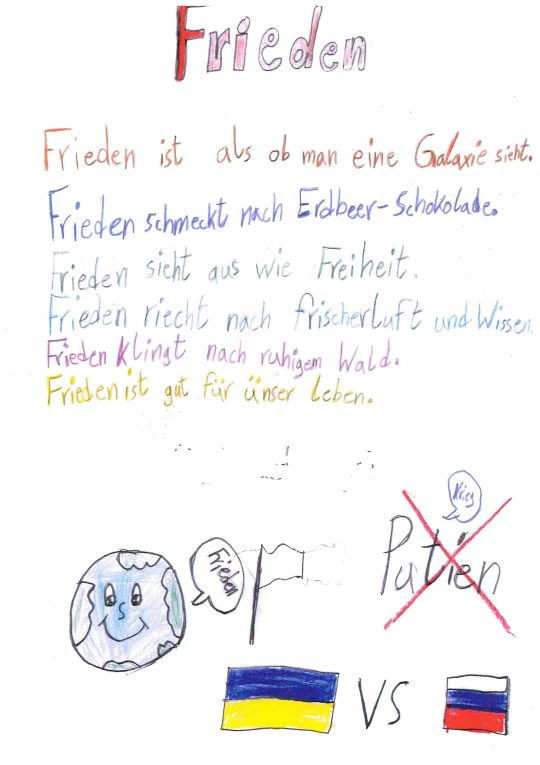 Frieden
Frieden ist als ob man eine Galaxie sieht.
Frieden schmeckt nach Erdbeer-Schokolade.
Frieden sieht aus wie Freiheit.
Frieden riecht nach frischerluft und Wissen.
Frieden klingt nach ruhigem Wald.
Frieden ist gut für ünser leben.
Krieg
Frieden
Putien
VS